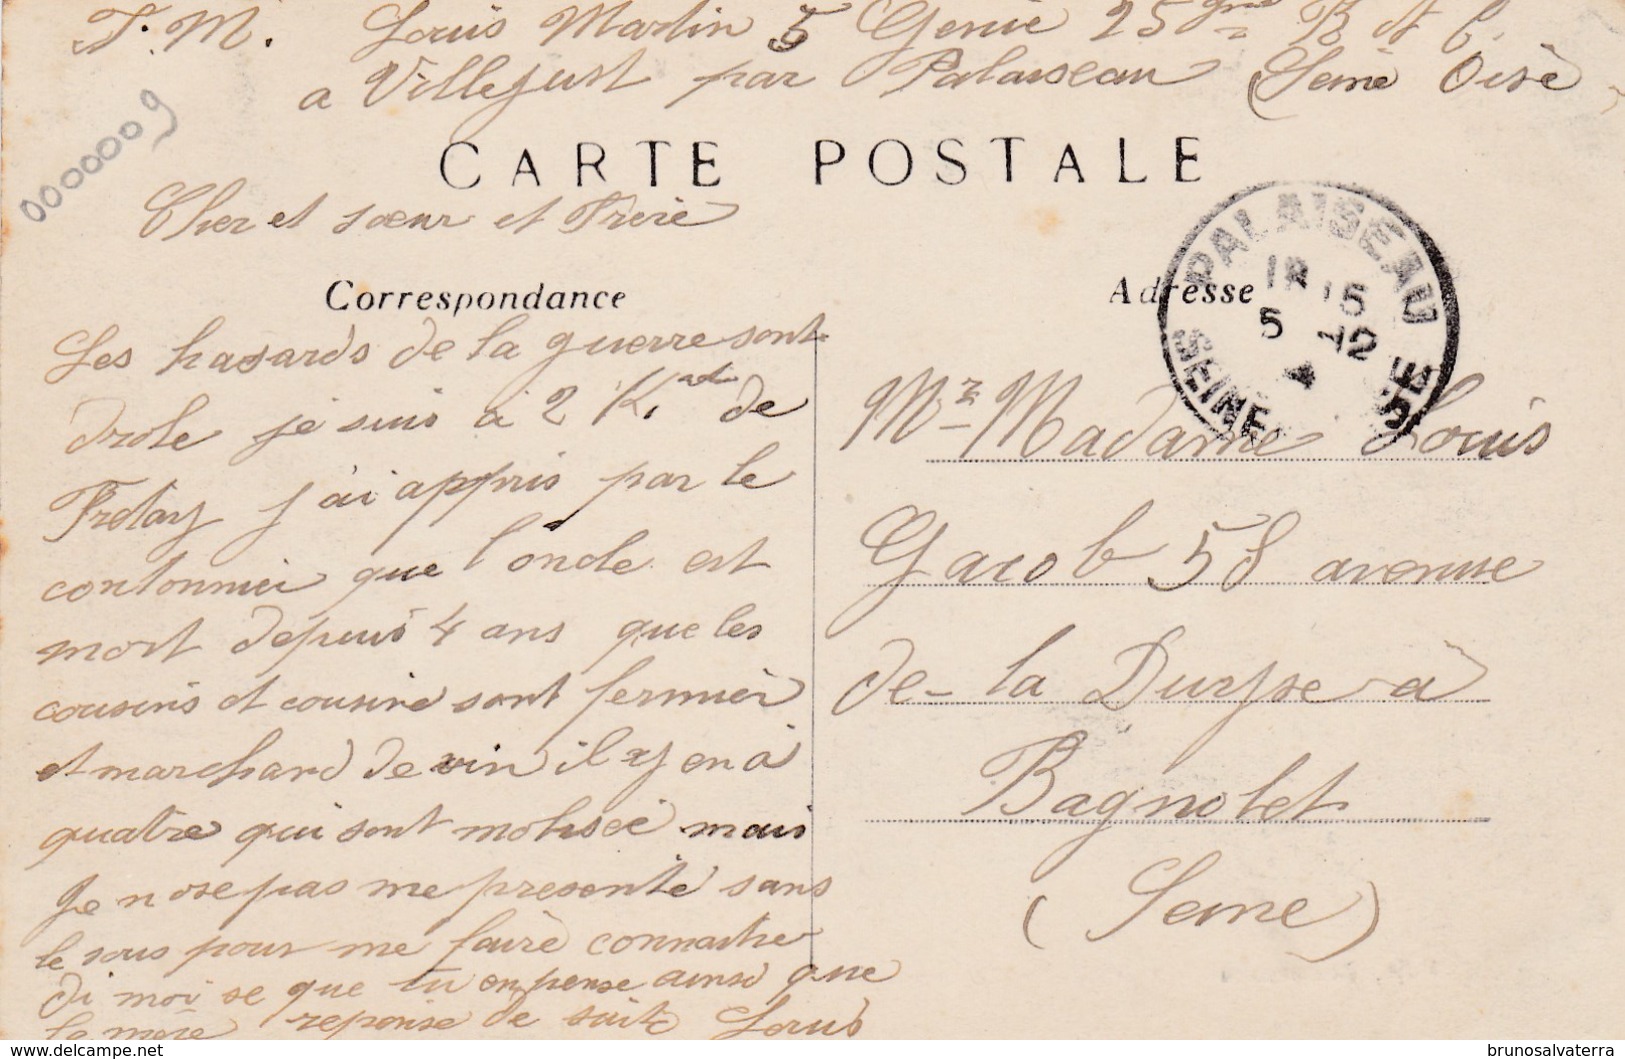 F. M. Louis Martin 5 Génie 25 B
a Villejust par Palaiseau (Seine Oise
0000009
CARTE POSTALE
Cher et sœur et Frere
Correspondance
Adresse
PALAISEAU
5 -12
SEINE
Les hasards de la guerre sont
drole je suis à 2 K. de
Fretay j'ai appris par le
contonnier que l'oncle est
mort depuis 4 ans que les
cousins et cousine sont fermier
et marchand de vin il y en à
quatre qui sont mobisée mais
je n ose pas me presenté sans
le sous pour me faire connaitre
di moi se que tu en pense ainsi que
la mère reponse de suite Louis
Mr Madame Louis
Jacob 58 avenue
de la Duyse à
Bagnolet
(Seine)
https://www.delcampe.net
brunosalvaterra